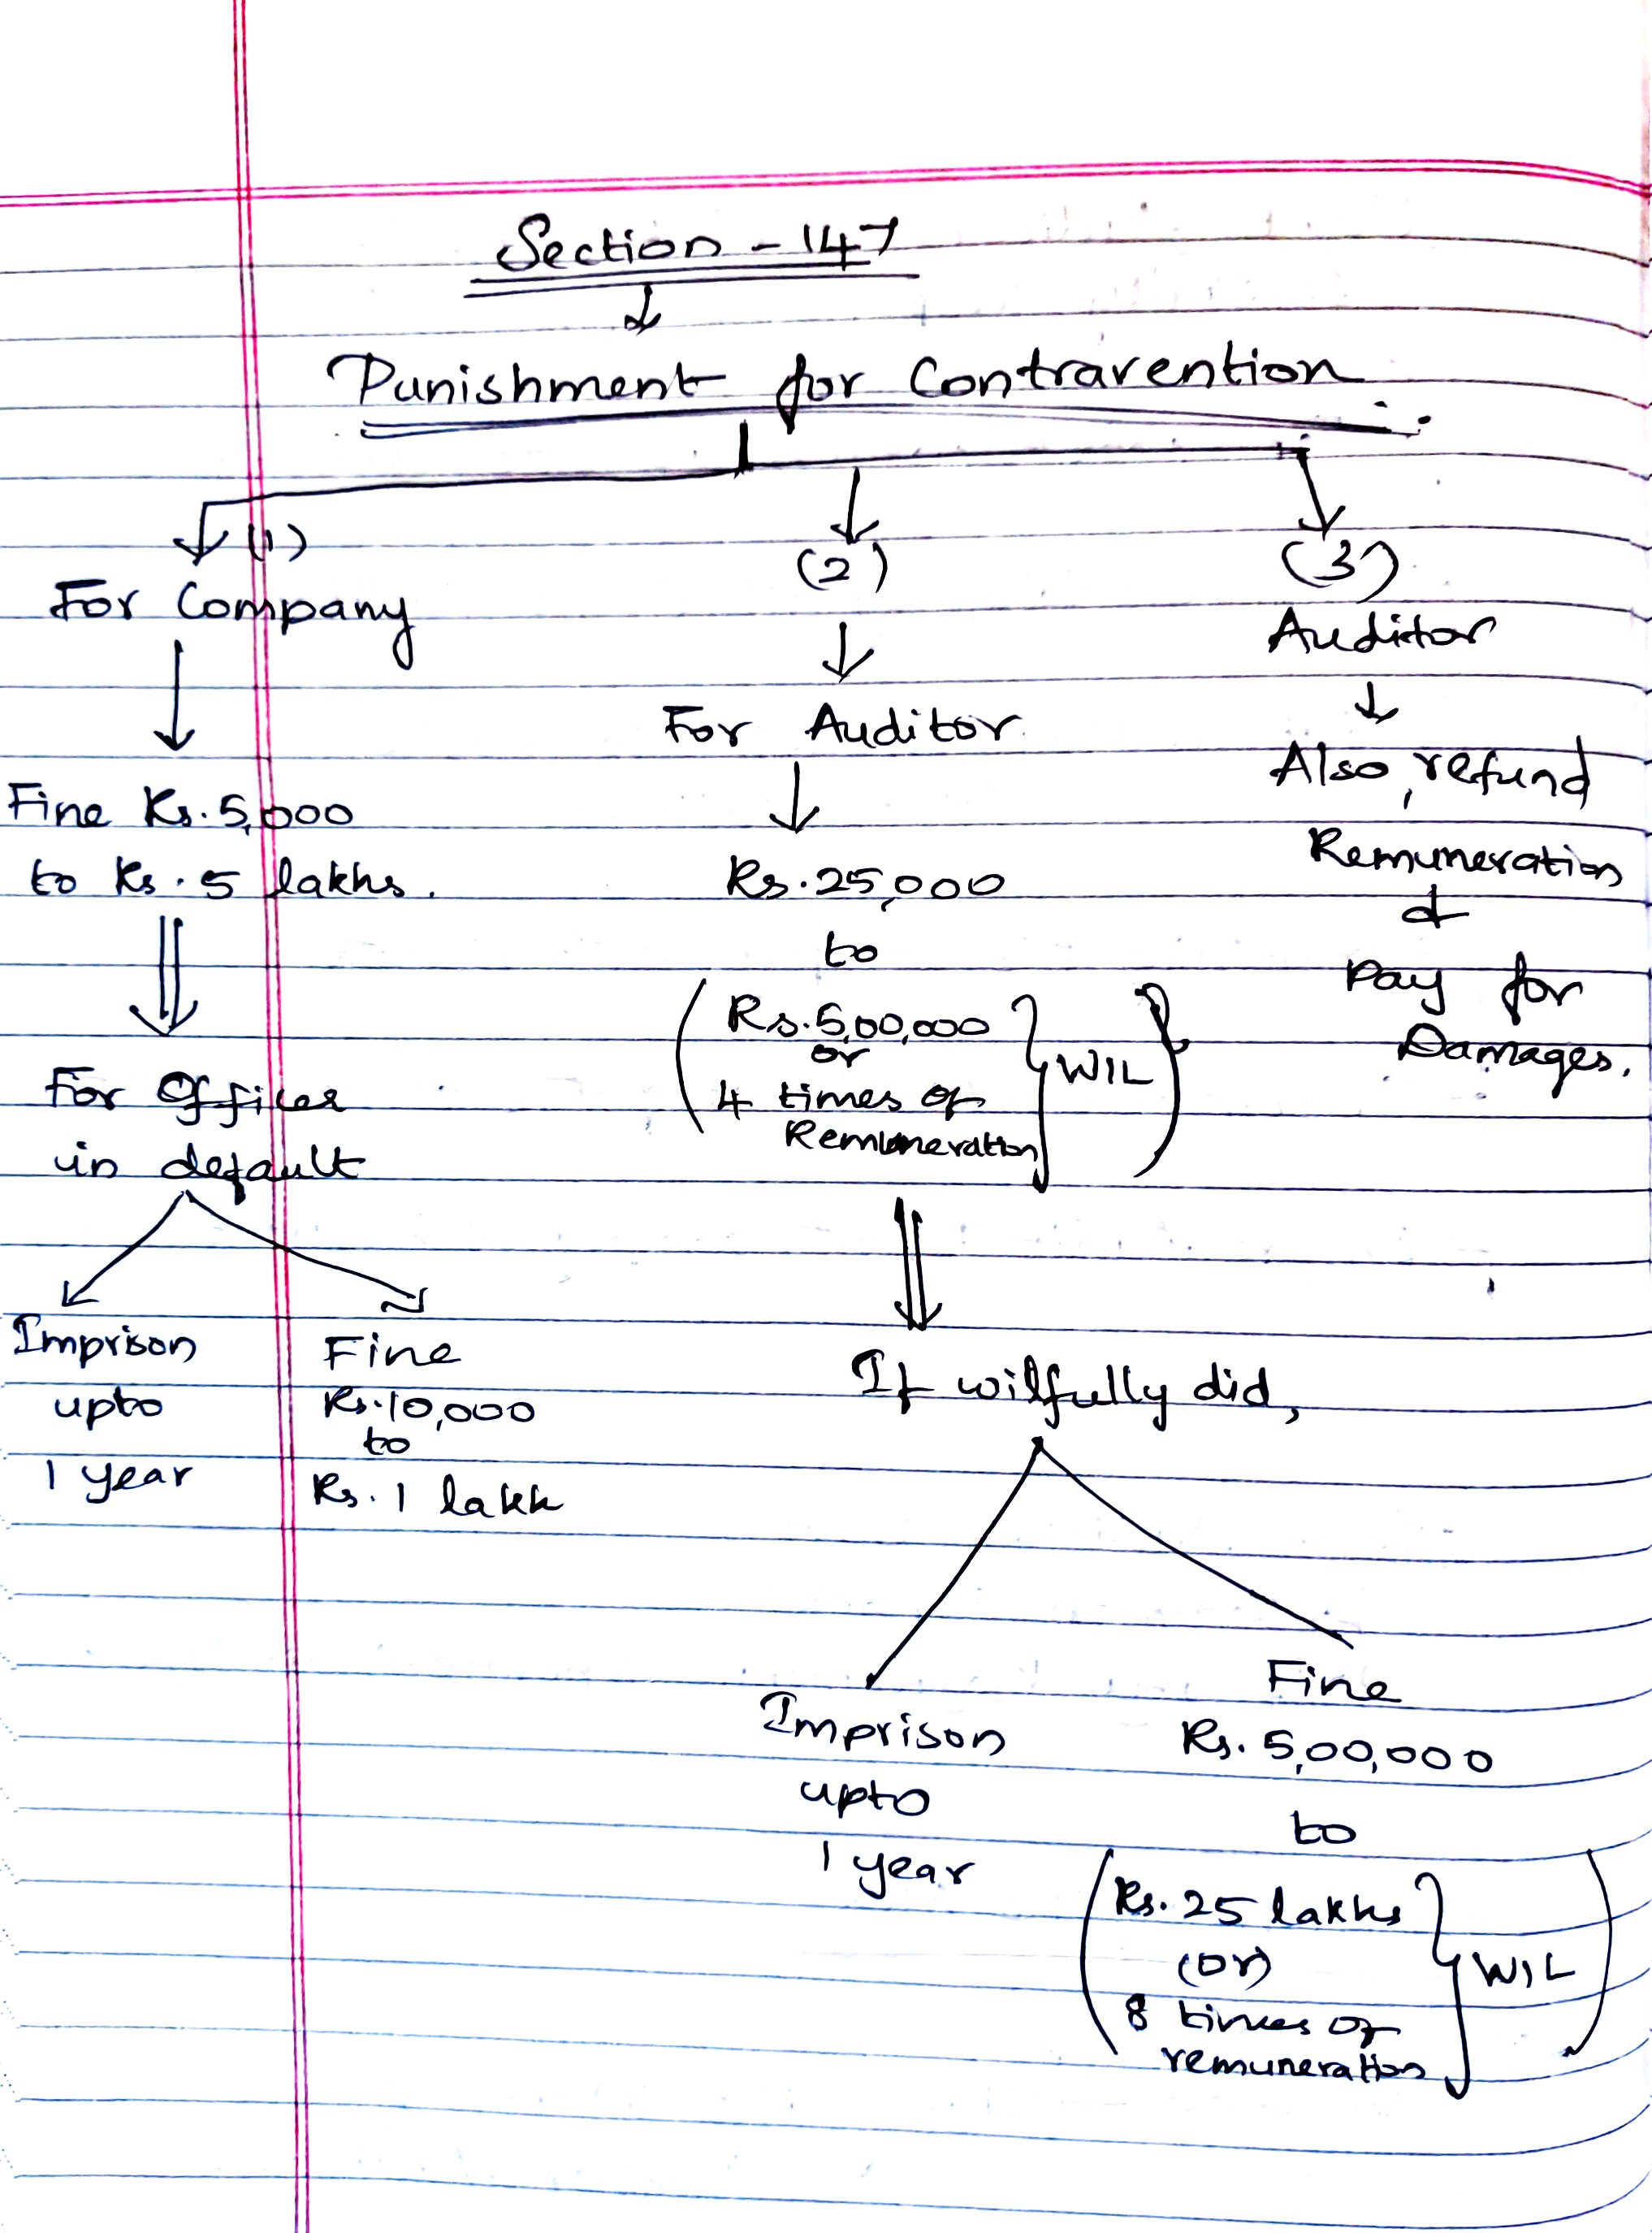 Section - 147
Punishment for Contravention
(1)
For Company
Fine Rs. 5,000
to Rs. 5 lakhs.
For Officer
in default
Imprison
upto
1 year
Fine
Rs. 10,000
to
Rs. 1 lakh
(2)
For Auditor
Rs. 25,000
to
Rs. 5,00,000
or
4 times of
Remuneration
WIL
If wilfully did,
Imprison
upto
1 year
Fine
Rs. 5,00,000
to
Rs. 25 lakhs
(or)
8 times of
remuneration
WIL
(3)
Auditor
Also, refund
Remuneration
&
Pay for
Damages.